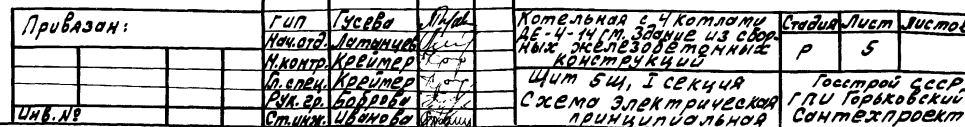 Привязан:
Инв.№
ГИП Гусева
Нач.отд. Латанцев
Н.контр. Креймер
Гл.спец. Креймер
Рук.гр. Боброва
Ст.инж. Иванова
Котельная с 4 котлами
ДЕ-4-14ГМ. Здание из сбор-
ных железобетонных
конструкций
Щит 5Щ, I секция
Схема электрическая
принципиальная
Стадия Лист Листов
Р 5
Госстрой СССР
ГПИ Горьковский
Сантехпроект